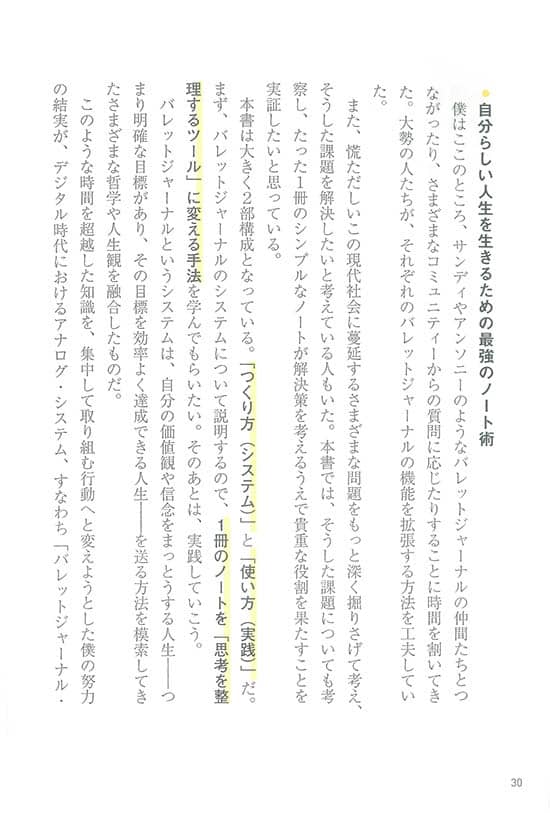 自分らしい人生を生きるための最強のノート術
僕はここのところ、サンディやアンソニーのようなバレットジャーナルの仲間たちとつ
ながったり、さまざまなコミュニティーからの質問に応じたりすることに時間を割いてき
た。大勢の人たちが、それぞれのバレットジャーナルの機能を拡張する方法を工夫してい
た。
また、慌ただしいこの現代社会に蔓延するさまざまな問題をもっと深く掘りさげて考え、
そうした課題を解決したいと考えている人もいた。本書では、そうした課題についても考
察し、たった1冊のシンプルなノートが解決策を考えるうえで貴重な役割を果たすことを
実証したいと思っている。
本書は大きく2部構成となっている。「つくり方（システム）」と「使い方（実践）」だ。
まず、バレットジャーナルのシステムについて説明するので、1冊のノートを「思考を整
理するツール」に変える手法を学んでもらいたい。そのあとは、実践していこう。
バレットジャーナルというシステムは、自分の価値観や信念をまっとうする人生――つ
まり明確な目標があり、その目標を効率よく達成できる人生――を送る方法を模索してき
たさまざまな哲学や人生観を融合したものだ。
このような時間を超越した知識を、集中して取り組む行動へと変えようとした僕の努力
の結実が、デジタル時代におけるアナログ・システム、すなわち「バレットジャーナル・
30